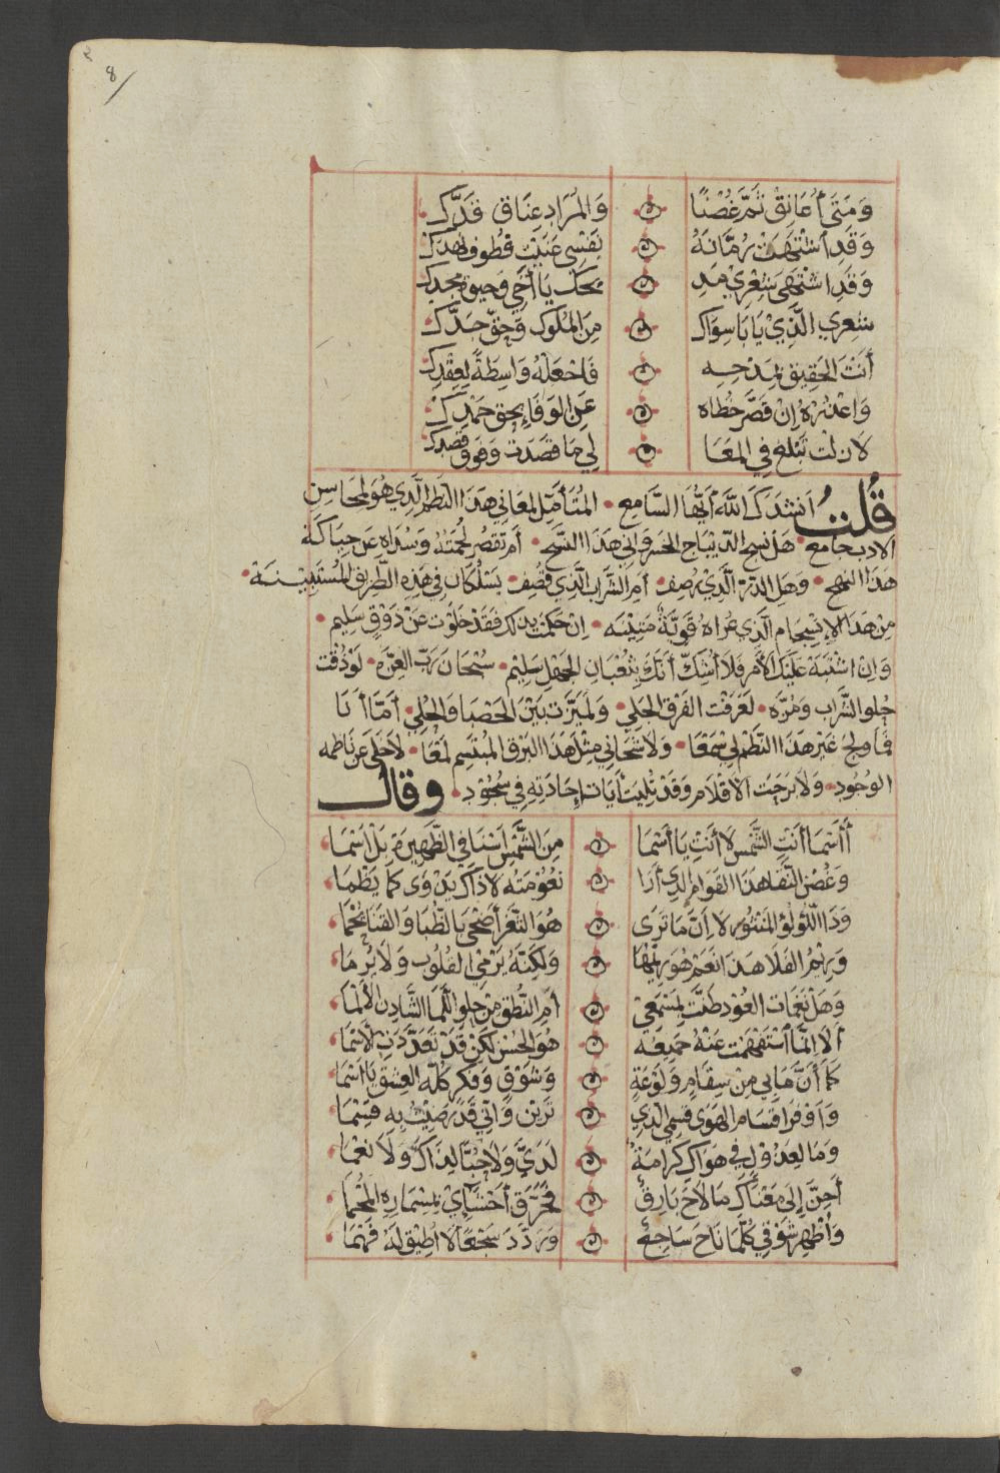 8
وَمَتَى أُعَانِقْ ثَمَّ غُصْنًا وَالمُرَادِ عِنَاقِ قَدِّكَ
وَقَدِ اشْتَهَتْ رُمَّانَهُ نَفْسِي عَنَيْتُ قُطُوفَ نَهْدِكَ
وَقَدِ اشْتَهَى شِعْرِي مَدِ يحَكَ يَا أَخِي وَحَقِّ مَجْدِكَ
شِعْرِي الَّذِي يَابَا سِوَاكَ مِنَ المُلُوكِ وَحَقِّ جَدِّكَ
أَنْتَ الحَقِيق بِمَدْحِهِ فَاجْعَلْهُ وَاسِطَةً لِعِقْدِكَ
وَاعْذُرْهُ إِنْ قَصَّرَ خُطَاه عَنِ الوَفَا بِحَقِّ حَمْدِكَ
لَازِلْتَ تَبْلُغ فِي المَعَا لِي مَا قَصَدْتَ وَفَوْقَ قَصْدِكَ
قُلْتُ أَنْشُدُكَ اللَّهَ أَيُّهَا السَّامِع المُتَأَمِّل لِمَعَانِي هَذَا النَّظْم الَّذِي هُوَ لِمَحَاسِنِ
الأدب جامع هَلْ نَسْج الدّيبَاج الخسرواني هَذَا النَّسْج أَم تَقْصُر لُحْمَتُهُ وَسُدَاهُ عَن حِيَاكَة
هَذَا النَّهْج وَهَلِ الدُّرّ الَّذِي رُصِفَ أَمِ الشَّرَاب الَّذِي قُصِفَ يَسْلُكَانِ فِي هَذِهِ الطَّرِيق المُسْتَبِينَة
مِنْ هَذَا الِانْسِجَام الَّذِي عُرَاهُ قَوِيَّةٌ مَتِينَه إِنْ حَكَمْتَ بِذَلِكَ فَقَدْ خَلَوْتَ عَنْ ذَوْقٍ سَلِيم
وَإِنِ اشْتَبَهَ عَلَيْكَ الأَمْر فَلَا أَشُكّ أَنَّكَ بِثُعْبَانِ الجَهْلِ سَلِيم سُبْحَانَ رَبِّ العِزَّه لَوْ ذُقْتَ
حُلْو الشَّرَاب وَمُرَّه لَعَرَفْتَ الفَرْق الجَلِي وَلَمَيَّزْتَ بَيْنَ الحَصْبَا وَالحُلِي أَمَّا أَنَا
فَمَا وَلَجَ غَيْر هَذَا النَّظْم لِي سَمْعَا وَلَا شَجَانِي مِثْل هَذَا البَرْق المُبْتَسِم لَمْعَا لَا خَلَى عَن نَاظِمِه
الوُجُود وَلَا بَرِحَتِ الأَقْلَام وَقَدْ تُلِيَتْ آيَات إِجَادَتِهِ فِي سُجُود وقال
أَأَسْمَا أَنْتِ الشَّمْس لَا أَنْتِ يَا أَسْمَا مِنَ الشَّمْسِ أَسْنَا فِي الظَّهِيرَةِ بَلْ أَسْمَا
وَغُصْن النَّقَا هَذَا القَوَام الَّذِي أَرَا نُعُومَتُه لَا ذَاكَ يَذْوَى كَمَا يَظْمَا
وَذَا اللُّؤْلُؤ المَنْثُور لَا إِنَّ مَا تَرَى هُوَ الثَّغْر أَضْحَى بِالظُّبَا وَالقَنَا يُحْمَا
وَرِيْمُ الفَلَا هَذَا نَعَمْ هُوَ رِيْمُهَا وَلَكِنَّهُ يَرْمِي القُلُوب وَلَا يُرْمَا
وَهَلْ نَغَمَات العُود طَنَّتْ بِمَسْمَعِي أَمِ النُّطْق مِنْ حُلْوِ اللَّمَا الشَّادِنِ الأَلْمَا
أَلَا إِنَّمَا اسْتَفْهَمْت عَنْهُ جَمِيعَهُ هُوَ الحُسْن لَكِنْ قَدْ تَعَدَّدَتِ الأَسْمَا
كَمَا أَنَّ مَا بِي مِنْ سِقَامٍ وَلَوْعَةٍ وَشَوْقٍ وَفِكْرٍ كُلُّه العِشْق يَا أَسْمَا
وَأَوْفَرُ أَقْسَامِ الهَوَى قِسْمِي الَّذِي تَرَيْن وَإِنِّي قَدْ رَضِيْتُ بِهِ قِسْمَا
وَمَا لِعَذُولِي فِي هَوَاكِ كَرَامَةٌ لَدَيَّ وَلَا حُبًّا لِذَاكَ وَلَا نُعْمَا
أَحِنُّ إِلَى مَغْنَاكِ مَا لَاحَ بَارِقٌ فَحَرَّقَ أَحْشَايَ بِمِسْمَارِهِ المُحْمَا
وَأُظْهِرُ شَوْقِي كُلَّمَا نَاحَ سَاجِعٌ وَرَدَّدَ سَجْعًا لَا أُطِيق لَهُ فَهْمَا